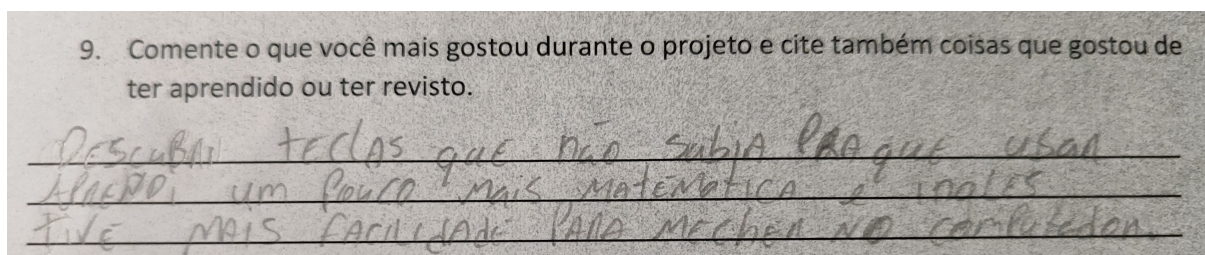 9. Comente o que você mais gostou durante o projeto e cite também coisas que gostou de
ter aprendido ou ter revisto.
DESCUBRI teclAS que não SubiA PRA que usaR
APRENDI um Pouco MAIS MATEMÁTICA e inglES
TIVE MAIS FACILIdAdE PARA MECheR NO computedor.